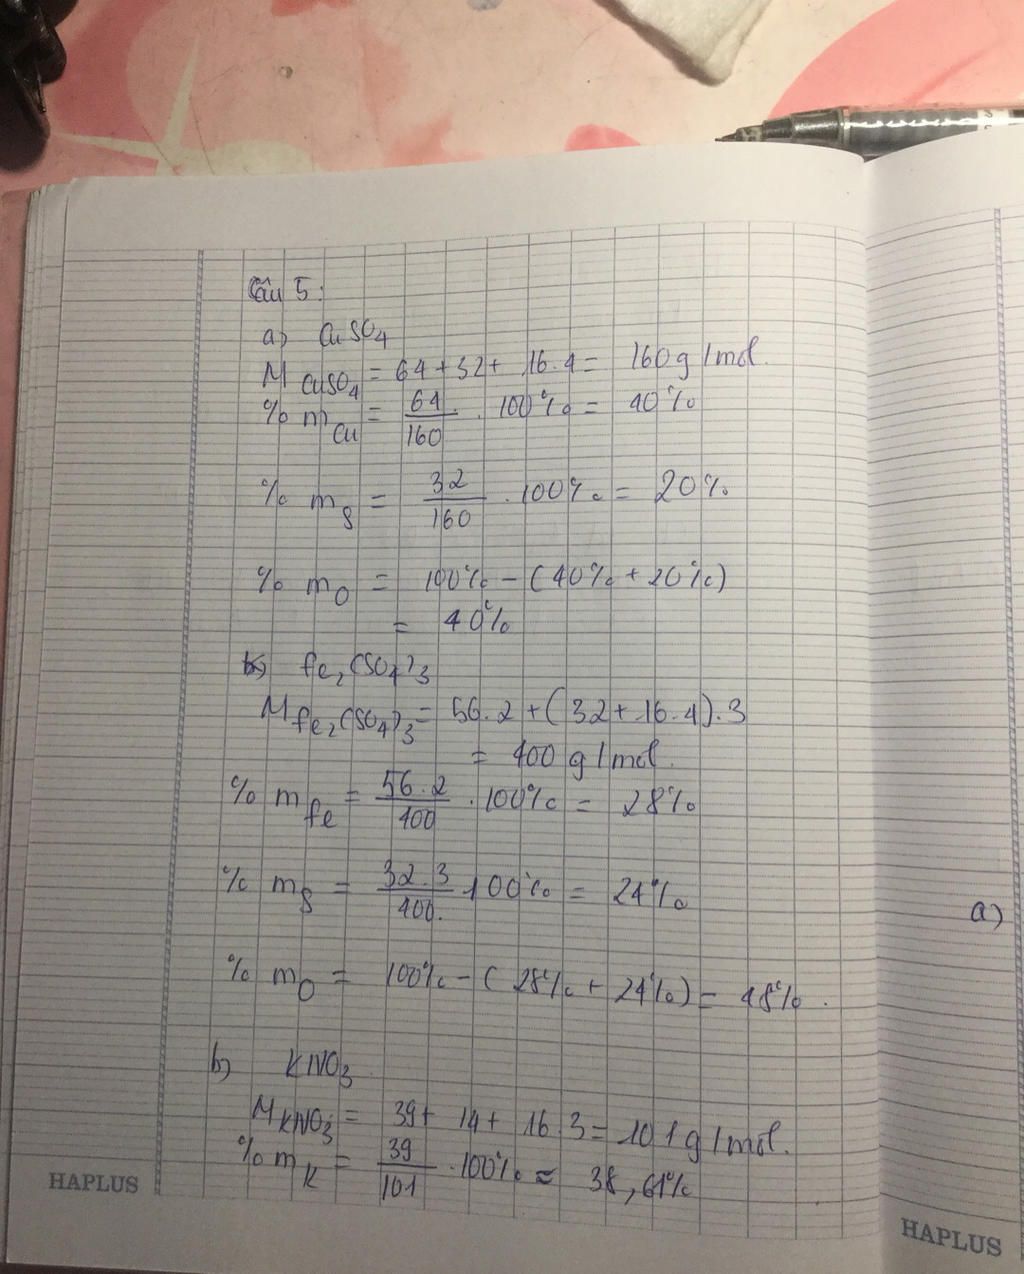 Câu 5:
a) CuSO4
M CuSO4 = 64+32+ 16.4= 160g/mol.
% m Cu = 64/160 . 100% = 40%
% m S = 32/160 . 100% = 20%
% m O = 100% - (40% + 20%)
= 40%
b) Fe2(SO4)3
M Fe2(SO4)3 = 56.2 + (32+16.4).3
= 400 g/mol.
% m Fe = 56.2/400 . 100% = 28%
% m S = 32.3/400 . 100% = 24%
a)
% m O = 100% - (28% + 24%) = 48%.
b) KNO3
M KNO3 = 39+ 14+ 16.3= 101g/mol.
% m K = 39/101 . 100% ≈ 38,61%
HAPLUS
HAPLUS